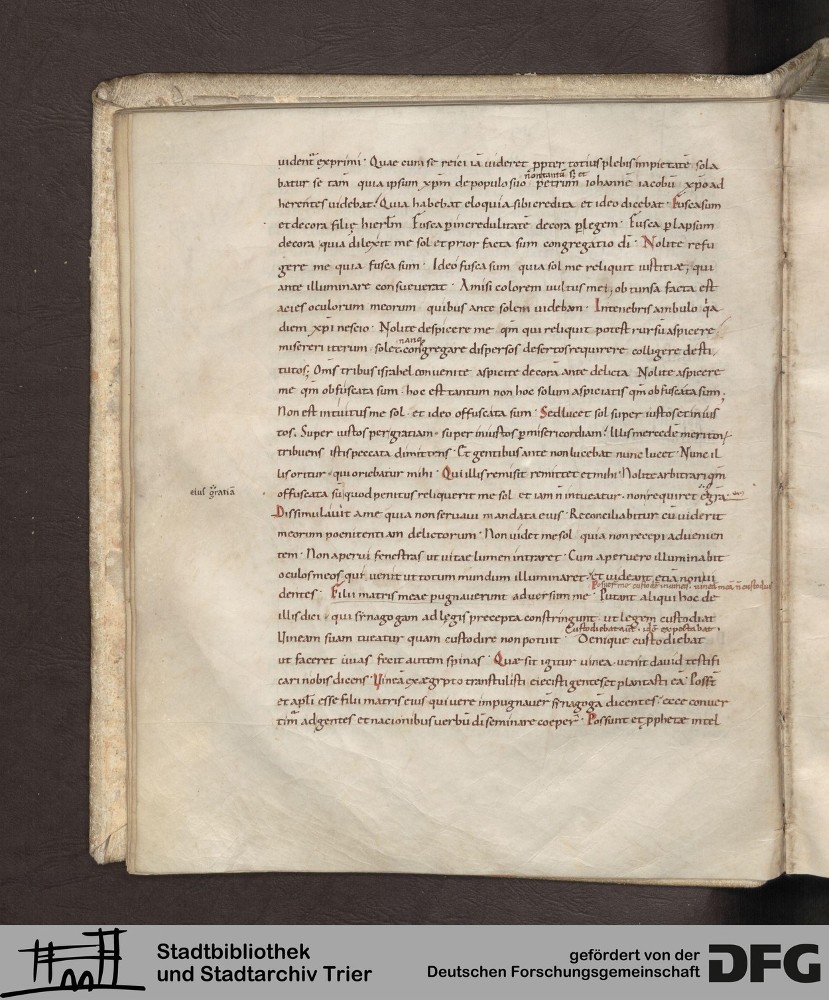 uident᷑ exprimi · Quae cum se reici iā uideret ꝓpter totius plebis impietatē sola
n̄ontantū s; et
batur se tam̄ quia ipsum xp̄m de populo suo petrum iohannē iacobū xp̄o ad
herentes uidebat · Quia habebat eloquia sibi credita et ideo dicebat · Fusca sum
et decora filię hierłm · Fusca ꝑ incredulitatē decora ꝑ legem · Fusca ꝑ lapsum
decora quia dilexit me sol et prior facta sum congregatio dī · Nolite refu
gere me quia fusca sum · Ideo fusca sum quia sol me reliquit iustitiae, qui
ante illuminare consueuerat · Amisi colorem uultus mei, obtunsa facta est
acies oculorum meorum quibus ante solem uidebam · In tenebris ambulo q̓a
diem xp̄i nescio · Nolite despicere me qm̄ qui reliquit potest rursū aspicere
misereri iterum solet congregare dispersos desertos requirere colligere desti
tutos; Om̄s tribus israhel conuenite aspicite decorā ante delicta Nolite aspicere
me qm̄ obfuscata sum · hoc est tantum non hoc solum aspiciatis qm̄ obfuscata sum;
Non est intuitus me sol et ideo offuscata sum · Sed lucet sol super iustos et inius
tos; Super iustos per gratiam super iniustos ꝑ misericordiam · Illis mercedē meritor̄
tribuens istis peccata dimittens · Et gentibus ante non lucebat nunc lucet · Nunc il
lis oritur qui oriebatur mihi · Qui illis remisit remittet et mihi · Nolite arbitrari qm̄
eius gratiā
offuscata sū quod penitus reliquerit me sol et iam n̄ intueatur · non requiret
Dissimulauit a me quia non seruaui mandata eius · Reconciliabitur cū uiderit
meorum poenitentiam delictorum · Non uidet me sol quia non recepi aduenien
tem · Non aperui fenestras ut uitae lumen intraret · Cum aperuero illuminabit
oculos meos qui uenit ut totum mundum illuminaret · et uideant etiā non ui
Posuer̄ me custodē in uineis · uineā meā n̄ custodiui
dentes · Filii matris meae pugnauerunt aduersum me · Putant aliqui hoc de
illis dici qui synagogam ad legis precepta constringunt ut legem custodiat
Custodiebat aut̄ · idē expectabat ·
Uineam suam tueatur quam custodire non potuit · Denique custodiebat
ut faceret uuas fecit autem spinas · Quae sit igitur uinea uenit dauid testifi
cari nobis dicens · Uineā ex aegypto transtulisti eiecisti gentes et plantasti eā · Possn̄t
et apłi esse filii matris eius qui uere impugnauer̄ synagogā dicentes · ecce conuer
tim̄ ad gentes et nacionibus uerbū dī seminare coeper̄ · Possunt et ꝓphetae intel
Stadtbibliothek
und Stadtarchiv Trier
gefördert von der
Deutschen Forschungsgemeinschaft
DFG